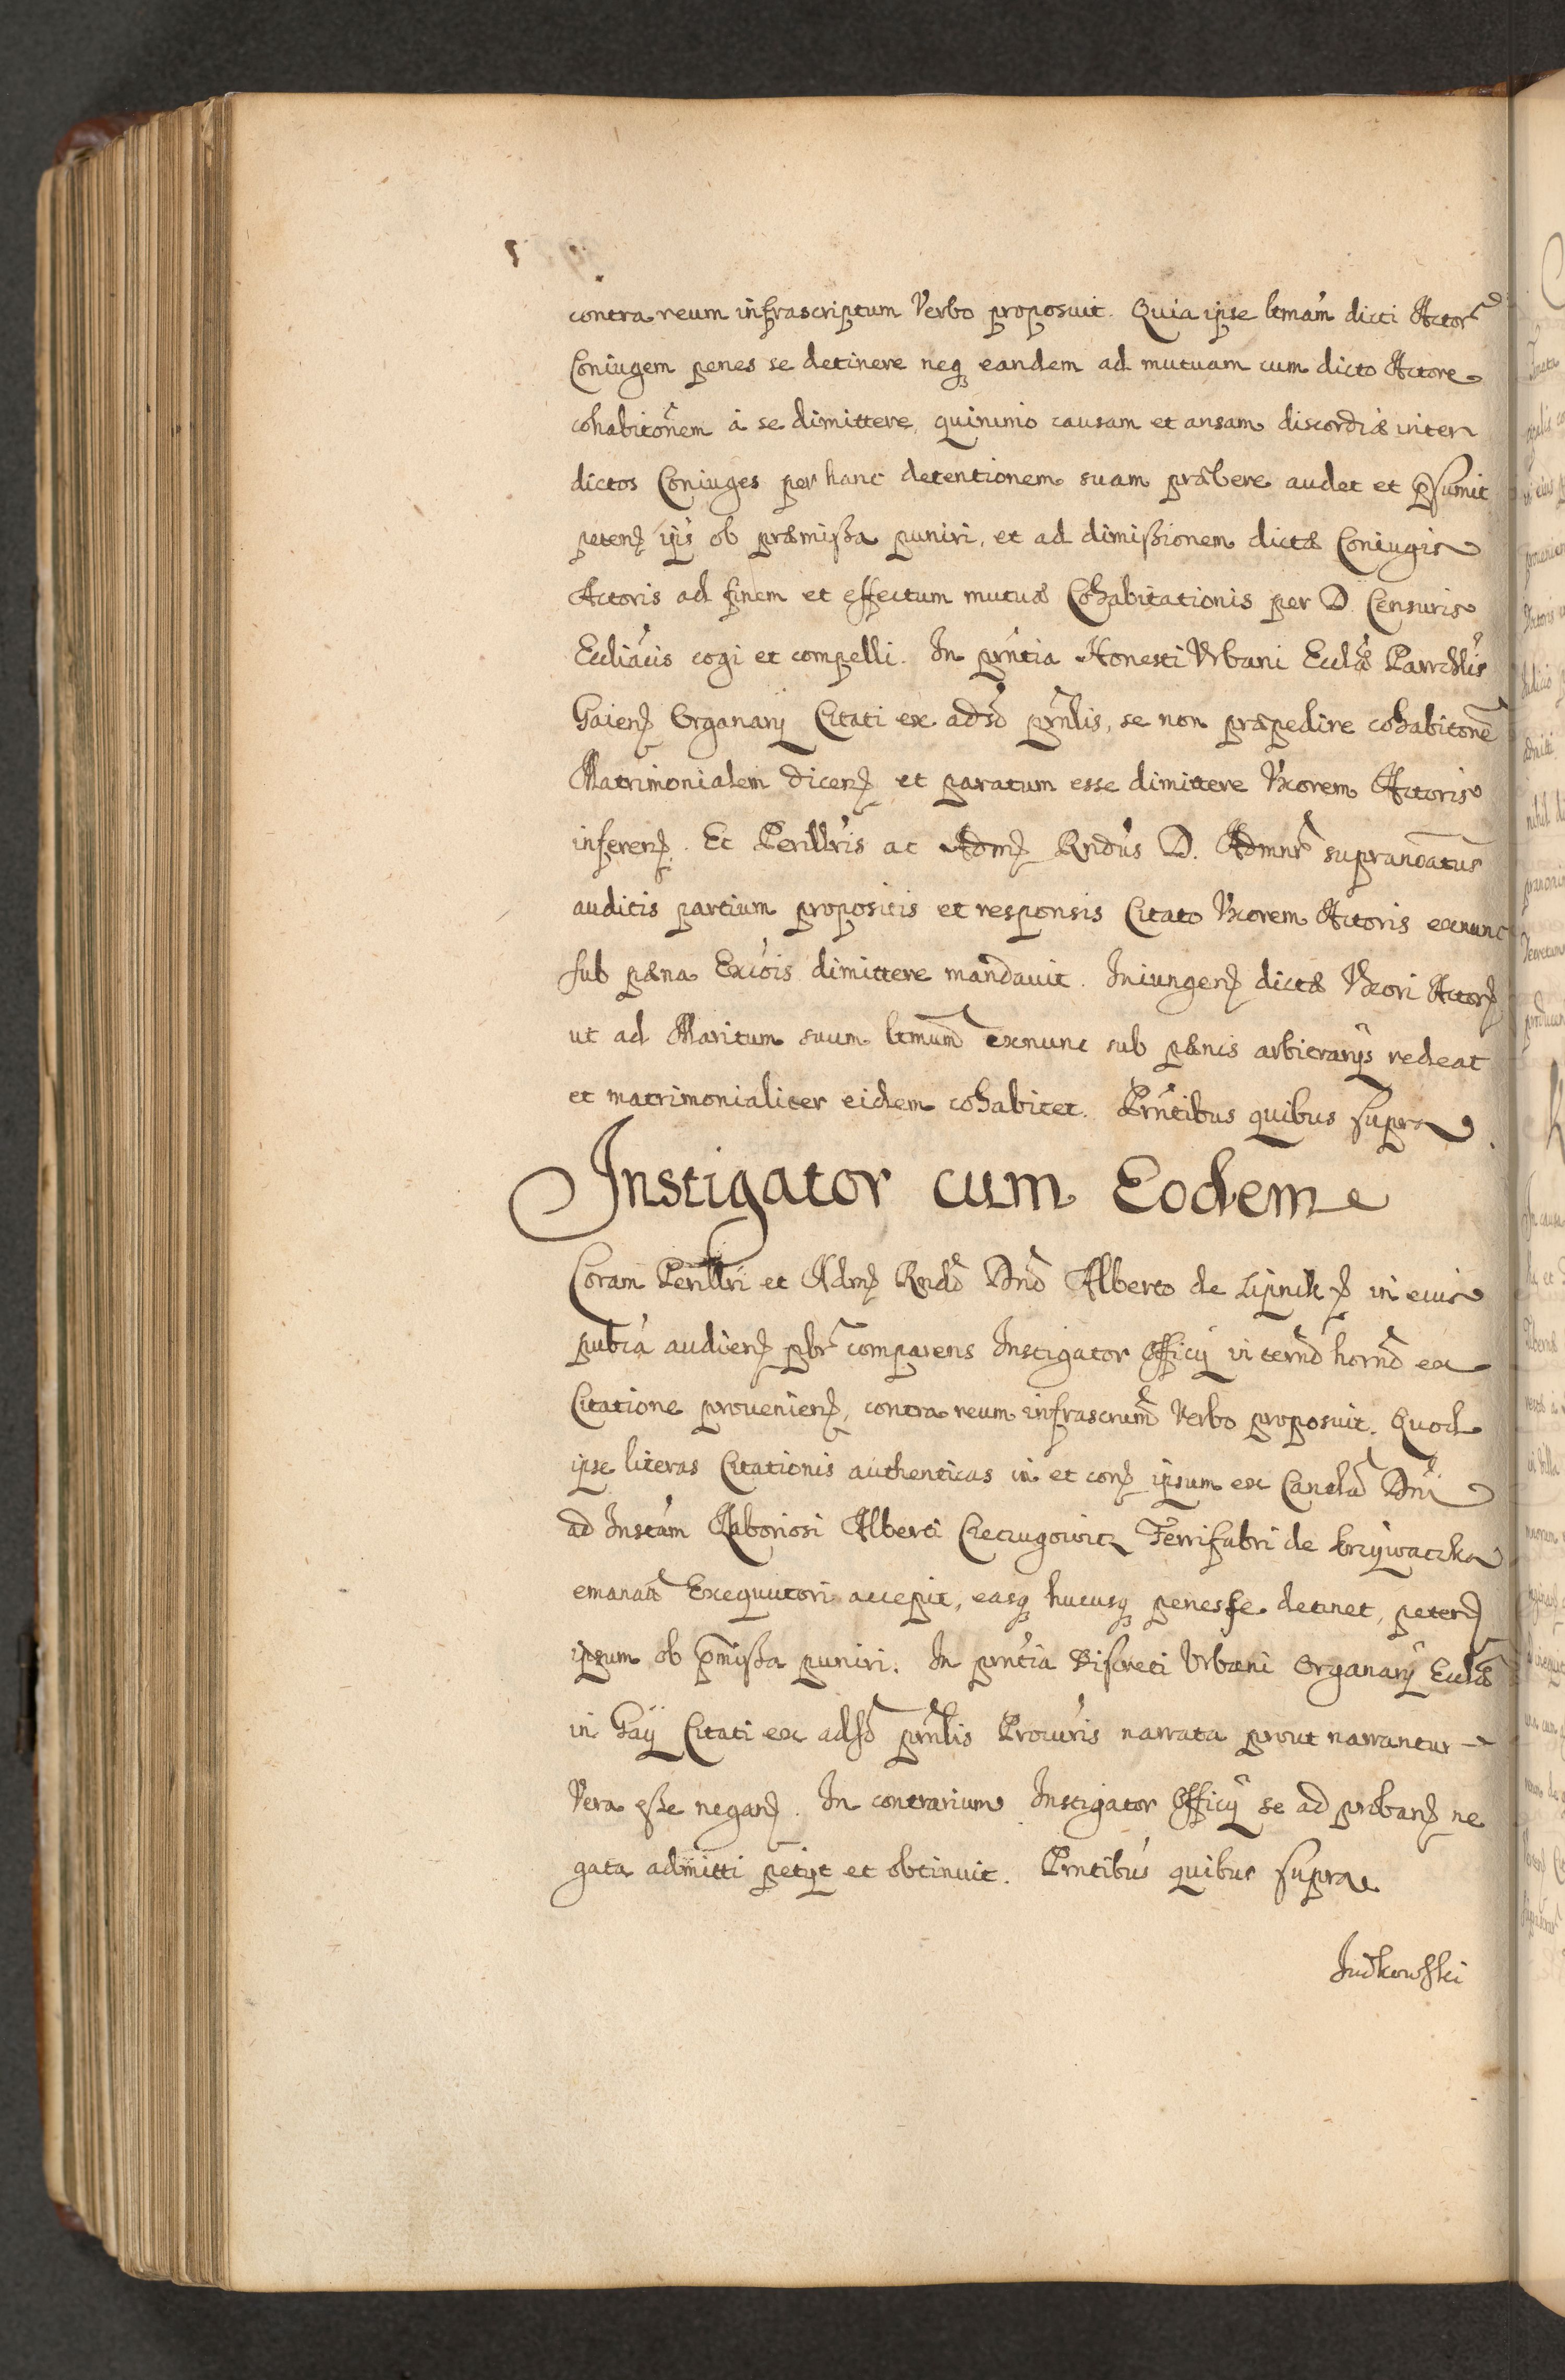 contra reum infrascriptum Verbo proposuit. Quia ipse ltmam dicti Actor
Coniugem penes se detinere neq eandem ad mutuam cum dicto Actore
cohabitonem à se dimittere, quinimo causam et ansam discordiæ inter
dictos Coniuges per hanc detentionem suam præbere audet et psumit
peten ips ob præmißa puniri, et ad dimißionem dictæ Coniugis
Actoris ad finem et effectum mutuæ Cohabitationis per D. Censuris
Eccliācis cogi et compelli. In prntia Honesti Urbani Ecclæ Parrchlis
Gaien Organarÿ Citati ex adso prnlis, se non præpedire cohabitonē
Matrimonialem dicen et paratum esse dimittere Uxorem Actoris
inferen. Et Perillris ac Adm Rndus D. Admnr supranoatus
auditis partium propositis et responsis Citato Uxorem Actoris exnunc
sub pæna Excois dimittere mandavit. Iniungen dictæ Uxori Actor
ut ad Maritum suum ltmum exnunc sub pænis arbitrarÿs redeat
et matrimonialiter eidem cohabitet. Prntibus quibus supra.
Instigator cum Eodem
Coram Perillri et Adm Rndo Dno Alberto de Lipnik in eius
publca audien pbr comparens Instigator Officÿ in termo horno ex
Citatione provenien, contra reum infrascrum Verbo proposuit. Quod
ipse literas Citationis authenticas in et con ipsum ex Cancla Dni
ad Instam Laboriosi Alberti Ferrifabri de Krzywaczka
emanat Exequutori accepit, easq hucusq penes se detinet, peten
ipsum ob pmißa puniri. In prntia Discreti Urbani Organarÿ Ecclæ
in Gaÿ Citati ex adso prnlis Procuris narrata prout narrantur
Vera eße negan. In contrarium Instigator Officÿ se ad proban ne
gata admitti petÿt et obtinuit. Prntibus quibus supra
Jutkowski